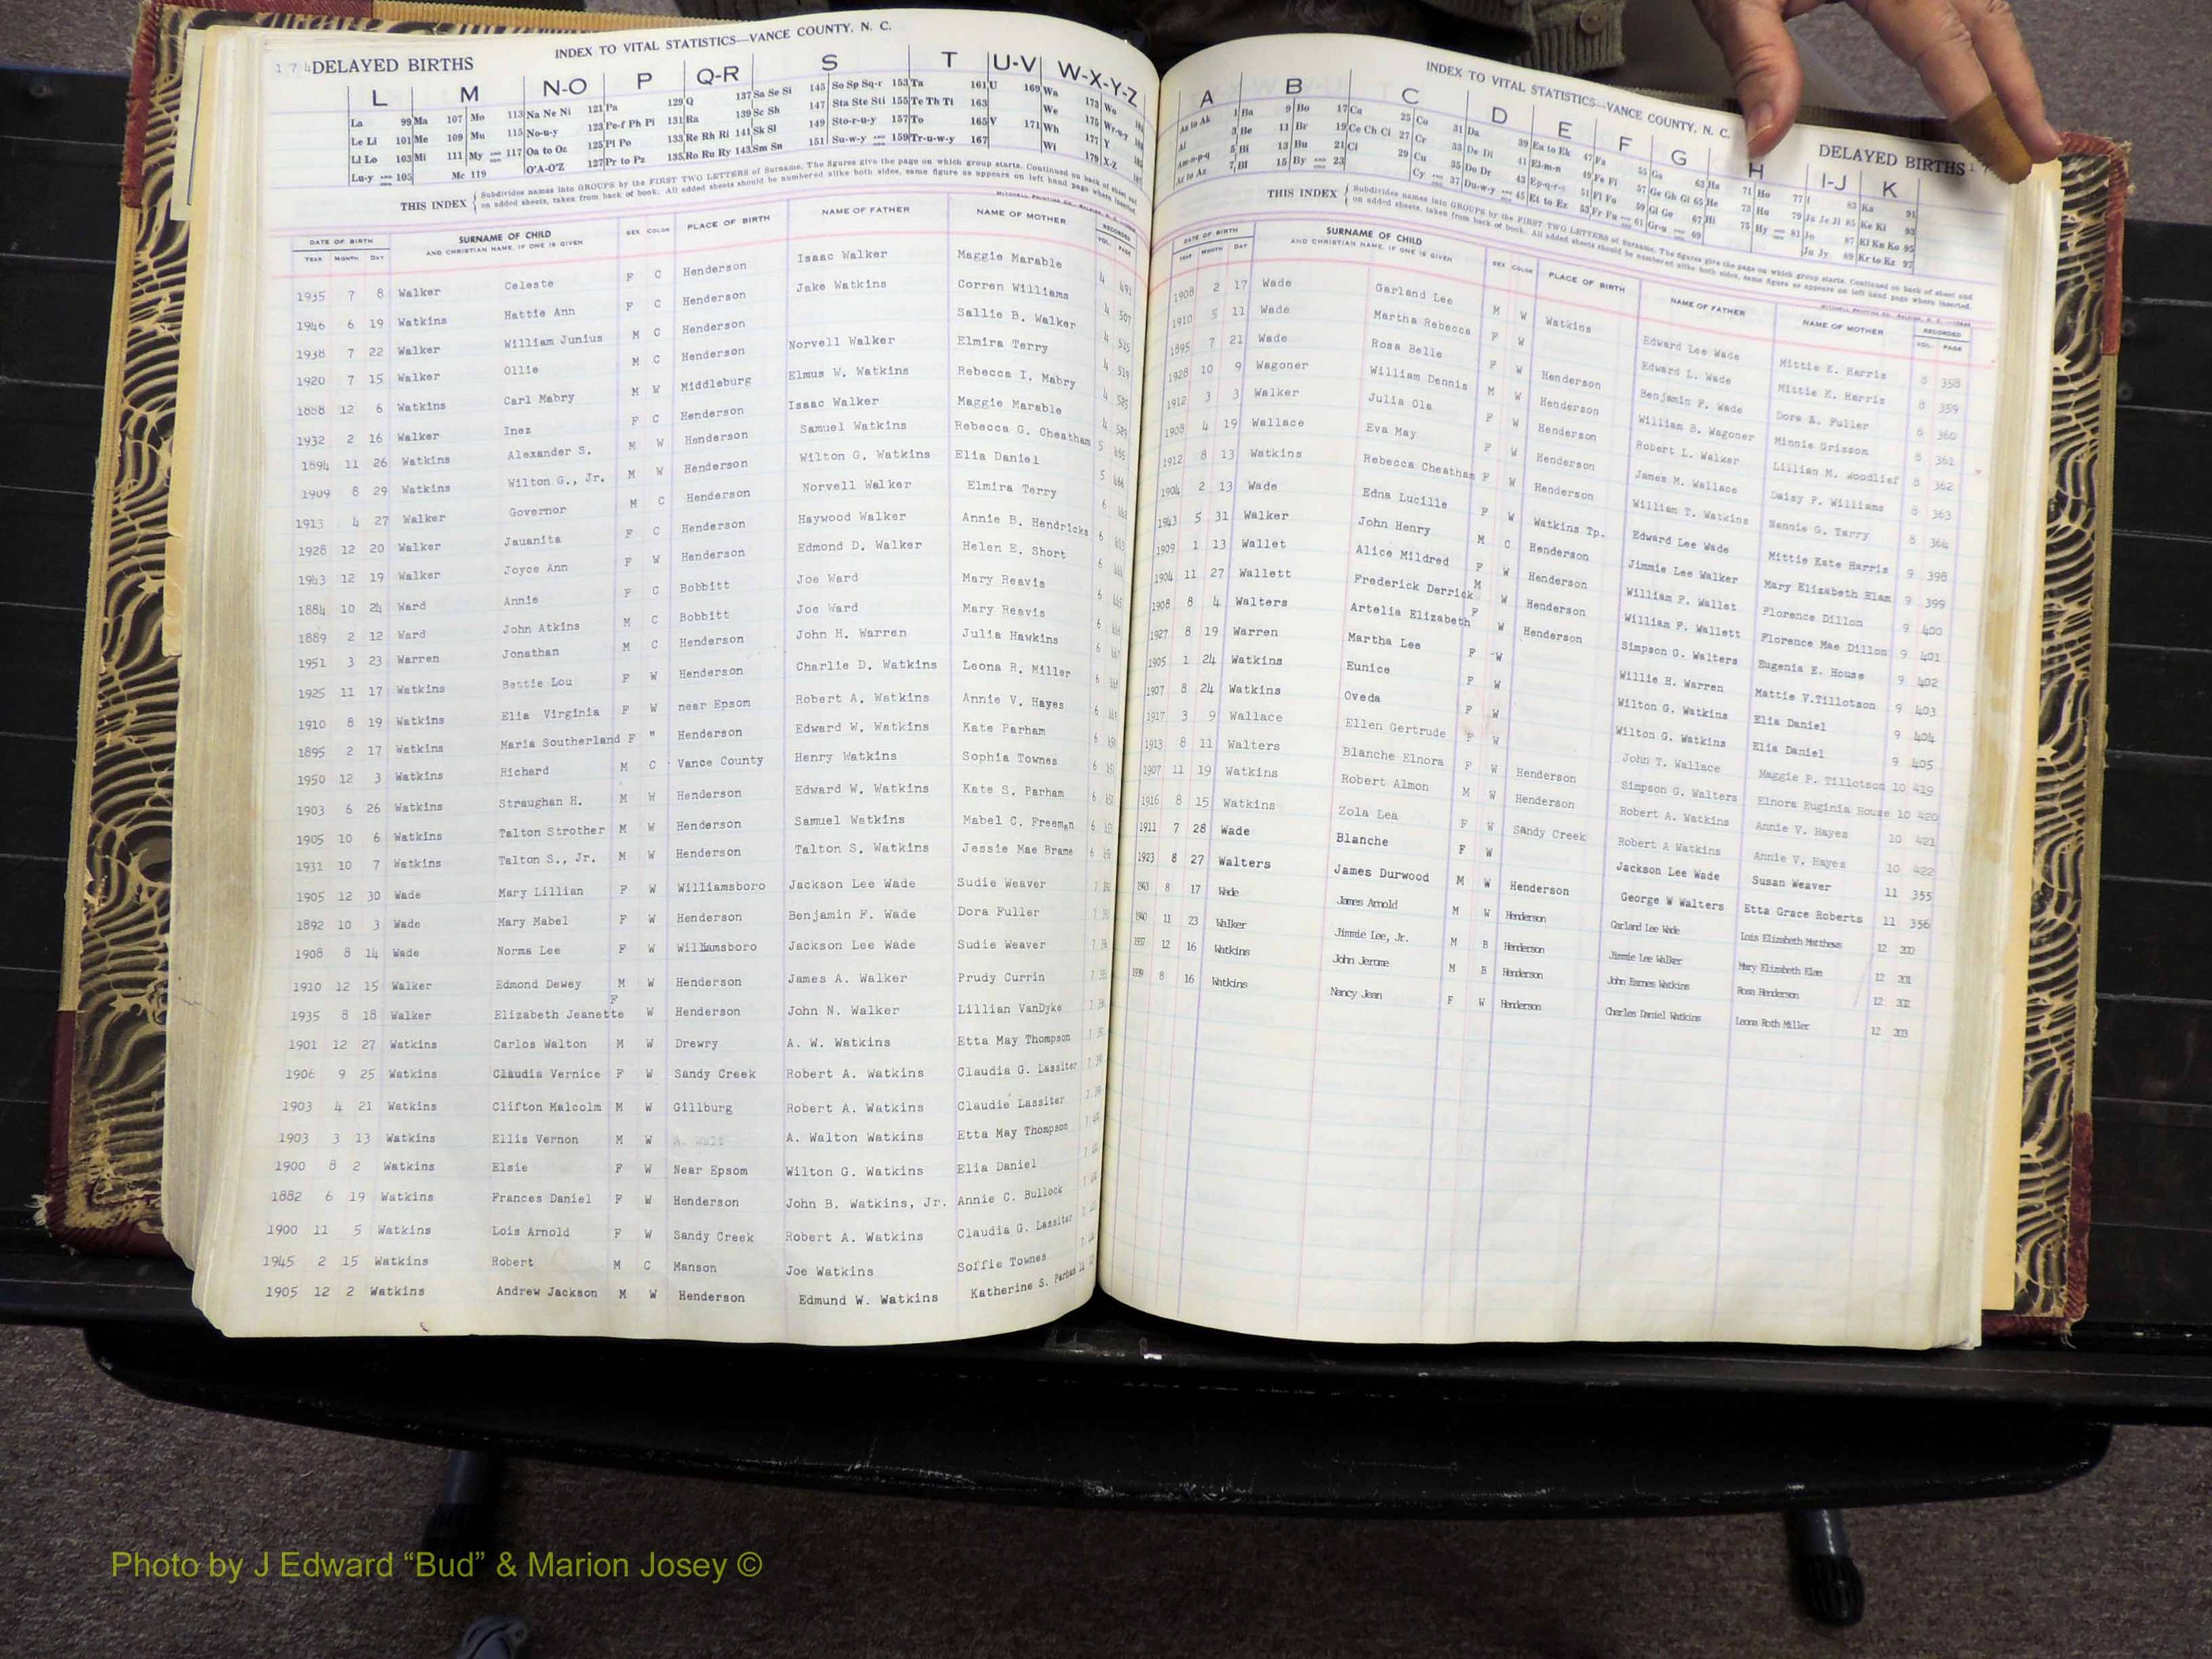 174 DELAYED BIRTHS
INDEX TO VITAL STATISTICS—VANCE COUNTY, N. C.
L M N-O P Q-R S T U-V W-X-Y-Z
La 99 Ma 107 Mo 113 Na Ne Ni 121 Pa 129 Q 137 Sa Se Si 145 So Sp Sq-r 153 Ta 161 U 169 Wa 173 Wo
Le Li 101 Me 109 Mu 115 No-u-y 123 Pe-f Ph Pi 131 Ra 139 Sc Sh 147 Sta Ste Sti 155 Te Th Ti 163 We 175 Wr-u-y
Ll Lo 103 Mi 111 My and 117 Oa to Oz 125 Pl Po 133 Re Rh Ri 141 Sk Sl 149 Sto-r-u-y 157 To 165 V 171 Wh 177 Y
Lu-y and 105 Mc 119 O'A-O'Z 127 Pr to Pz 135 Ro Ru Ry 143 Sm Sn 151 Su-w-y and 159 Tr-u-w-y 167 Wi 179 X-Z
THIS INDEX { Subdivides names into GROUPS by the FIRST TWO LETTERS of Surname. The figures give the page on which group starts. Continued on back of sheet and
on added sheets, taken from back of book. All added sheets should be numbered alike both sides, same figure as appears on left hand page where inserted.
DATE OF BIRTH SURNAME OF CHILD SEX COLOR PLACE OF BIRTH NAME OF FATHER NAME OF MOTHER RECORDED
YEAR MONTH DAY AND CHRISTIAN NAME, IF ONE IS GIVEN VOL. PAGE
1935 7 8 Walker Celeste F C Henderson Isaac Walker Maggie Marable 4 491
1946 6 19 Watkins Hattie Ann F C Henderson Jake Watkins Corren Williams 4 507
1938 7 22 Walker William Junius M C Henderson Sallie B. Walker 4 515
1920 7 15 Walker Ollie M C Henderson Norvell Walker Elmira Terry 4 519
1888 12 6 Watkins Carl Mabry M W Middleburg Elmus W. Watkins Rebecca I. Mabry 4 525
1932 2 16 Walker Inez F C Henderson Isaac Walker Maggie Marable 4 529
1894 11 26 Watkins Alexander S. M W Henderson Samuel Watkins Rebecca G. Cheatham 5 465
1909 8 29 Watkins Wilton G., Jr. M W Henderson Wilton G. Watkins Elia Daniel 5 466
1913 4 27 Walker Governor M C Henderson Norvell Walker Elmira Terry 6
1928 12 20 Walker Jauanita F C Henderson Haywood Walker Annie B. Hendricks 6
1943 12 19 Walker Joyce Ann F W Henderson Edmond D. Walker Helen E. Short 6
1884 10 24 Ward Annie F C Bobbitt Joe Ward Mary Reavis 6
1889 2 12 Ward John Atkins M C Bobbitt Joe Ward Mary Reavis 6
1951 3 23 Warren Jonathan M C Henderson John H. Warren Julia Hawkins 6
1925 11 17 Watkins Bettie Lou F W Henderson Charlie D. Watkins Leona R. Miller 6
1910 8 19 Watkins Elia Virginia F W near Epsom Robert A. Watkins Annie V. Hayes 6
1895 2 17 Watkins Maria Southerland F " Henderson Edward W. Watkins Kate Parham 6
1950 12 3 Watkins Richard M C Vance County Henry Watkins Sophia Townes 6
1903 6 26 Watkins Straughan H. M W Henderson Edward W. Watkins Kate S. Parham 6
1905 10 6 Watkins Talton Strother M W Henderson Samuel Watkins Mabel C. Freeman 6
1931 10 7 Watkins Talton S., Jr. M W Henderson Talton S. Watkins Jessie Mae Brame 6
1905 12 30 Wade Mary Lillian F W Williamsboro Jackson Lee Wade Sudie Weaver 7
1892 10 3 Wade Mary Mabel F W Henderson Benjamin F. Wade Dora Fuller 7
1908 8 14 Wade Norma Lee F W Williamsboro Jackson Lee Wade Sudie Weaver 7
1910 12 15 Walker Edmond Dewey M W Henderson James A. Walker Prudy Currin 7
1935 8 18 Walker Elizabeth Jeanette F W Henderson John N. Walker Lillian VanDyke 7
1901 12 27 Watkins Carlos Walton M W Drewry A. W. Watkins Etta May Thompson 7
1906 9 25 Watkins Claudia Vernice F W Sandy Creek Robert A. Watkins Claudia G. Lassiter 7
1903 4 21 Watkins Clifton Malcolm M W Gillburg Robert A. Watkins Claudie Lassiter 7
1903 3 13 Watkins Ellis Vernon M W A. Walt A. Walton Watkins Etta May Thompson 7
1900 8 2 Watkins Elsie F W Near Epsom Wilton G. Watkins Elia Daniel 7
1882 6 19 Watkins Frances Daniel F W Henderson John B. Watkins, Jr. Annie C. Bullock 7
1900 11 5 Watkins Lois Arnold F W Sandy Creek Robert A. Watkins Claudia G. Lassiter
1945 2 15 Watkins Robert M C Manson Joe Watkins Soffie Townes 7
1905 12 2 Watkins Andrew Jackson M W Henderson Edmund W. Watkins Katherine S. Parham
INDEX TO VITAL STATISTICS—VANCE COUNTY, N. C.
DELAYED BIRTHS
A B C D E F G H I-J K
Aa to Ak 1 Ba 9 Bo 17 Ca 25 Co 31 Da 39 Ea to Ek 47 Fa 55 Ga 63 Ha 71 Ho 77 I 83 Ka 91
Al 3 Be 11 Br 19 Ce Ch Ci 27 Cr 33 De Di 41 El-m-n 49 Fe Fi 57 Ge Gh Gi 65 He 73 Hu 79 Ja Je Ji 85 Ke Ki 93
Am-n-p-q 5 Bi 13 Bu 21 Cl 29 Cu 35 Do Dr 43 Ep-q-r-s 51 Fl Fo 59 Gl Go 67 Hi 75 Hy and 81 Jo 87 Kl Kn Ko 95
Ar to Az 7 Bl 15 By and 23 Cy and 37 Du-w-y and 45 Et to Ez 53 Fr Fu and 61 Gr-u and 69 Ju Jy 89 Kr to Kz 97
THIS INDEX { Subdivides names into GROUPS by the FIRST TWO LETTERS of Surname. The figures give the page on which group starts. Continued on back of sheet and
on added sheets, taken from back of book. All added sheets should be numbered alike both sides, same figure as appears on left hand page where inserted.
DATE OF BIRTH SURNAME OF CHILD SEX COLOR PLACE OF BIRTH NAME OF FATHER NAME OF MOTHER RECORDED
YEAR MONTH DAY AND CHRISTIAN NAME, IF ONE IS GIVEN VOL. PAGE
1908 2 17 Wade Garland Lee M W Watkins Edward Lee Wade Mittie K. Harris 8 358
1910 5 11 Wade Martha Rebecca F W Edward L. Wade Mittie K. Harris 8 359
1895 7 21 Wade Rosa Belle F W Henderson Benjamin F. Wade Dora A. Fuller 8 360
1928 10 9 Wagoner William Dennis M W Henderson William B. Wagoner Minnie Grissom 8 361
1912 3 3 Walker Julia Ola F W Henderson Robert L. Walker Lillian M. Woodlief 8 362
1908 4 19 Wallace Eva May F W Henderson James M. Wallace Daisy P. Williams 8 363
1912 8 13 Watkins Rebecca Cheatham F W Henderson William T. Watkins Nannie G. Terry 8 364
1904 2 13 Wade Edna Lucille F W Watkins Tp. Edward Lee Wade Mittie Kate Harris 9 398
1943 5 31 Walker John Henry M C Henderson Jimmie Lee Walker Mary Elizabeth Elam 9 399
1909 1 13 Wallet Alice Mildred F W Henderson William P. Wallet Florence Dillon 9 400
1904 11 27 Wallett Frederick Derrick M W Henderson William P. Wallett Florence Mae Dillon 9 401
1908 8 4 Walters Artelia Elizabeth F W Henderson Simpson G. Walters Eugenia E. House 9 402
1927 8 19 Warren Martha Lee F W Willie H. Warren Mattie V.Tillotson 9 403
1905 1 24 Watkins Eunice F W Wilton G. Watkins Elia Daniel 9 404
1907 8 24 Watkins Oveda F W Wilton G. Watkins Elia Daniel 9 405
1917 3 9 Wallace Ellen Gertrude F W John T. Wallace Maggie P. Tillotson 10 419
1913 8 11 Walters Blanche Elnora F W Henderson Simpson G. Walters Elnora Euginia House 10 420
1907 11 19 Watkins Robert Almon M W Henderson Robert A. Watkins Annie V. Hayes 10 421
1916 8 15 Watkins Zola Lea F W Sandy Creek Robert A Watkins Annie V. Hayes 10 422
1911 7 28 Wade Blanche F W Jackson Lee Wade Susan Weaver 11 355
1923 8 27 Walters James Durwood M W Henderson George W Walters Etta Grace Roberts 11 356
1943 8 17 Wade James Arnold M W Henderson Garland Lee Wade Lois Elizabeth Matthews 12 200
1940 11 23 Walker Jimmie Lee, Jr. M B Henderson Jimmie Lee Walker Mary Elizabeth Elam 12 201
1937 12 16 Watkins John Jerome M B Henderson John Eames Watkins Rosa Henderson 12 202
1939 8 16 Watkins Nancy Jean F W Henderson Charles Daniel Watkins Leona Roth Miller 12 203
Photo by J Edward “Bud” & Marion Josey ©